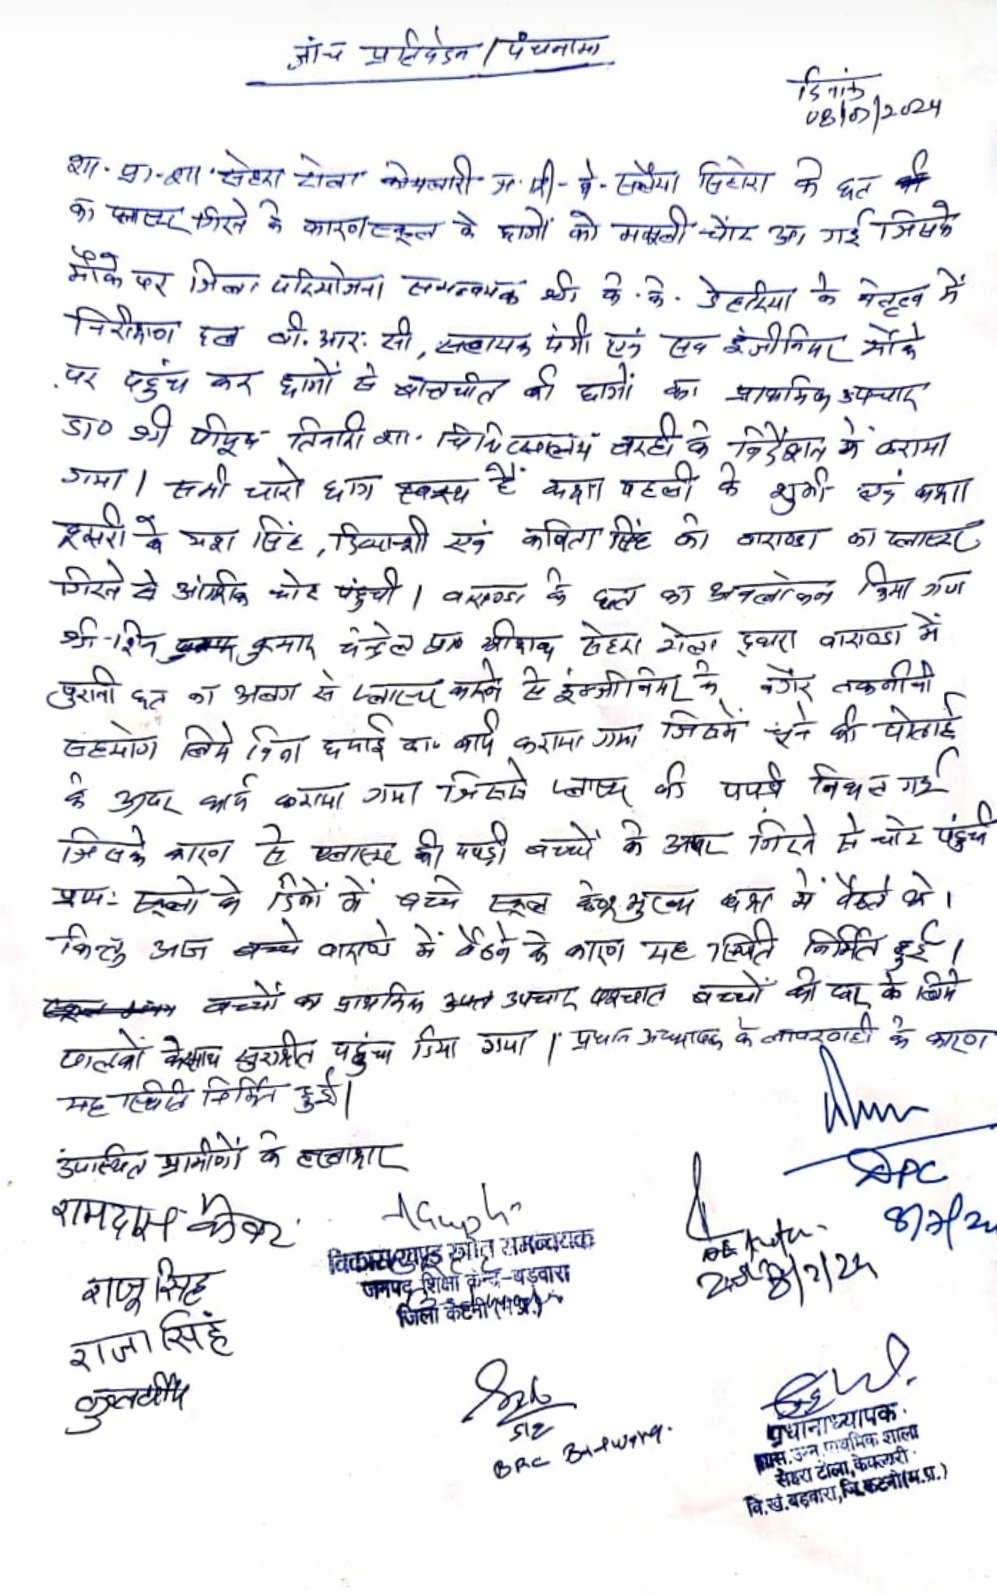 जांच प्रतिवेदन / पंचनामा
दिनांक
08/07/2024
शा. प्रा. शा. सेहरा टोला केवलारी के छत
का प्लास्टर गिरने के कारण स्कूल के छात्रों को मामूली चोंट आ गई जिसके
मौके पर जिला परियोजना समन्वयक श्री के. के. डेहरिया के नेतृत्व में
निरीक्षण दल बी. आर. सी, सहायक यंत्री एवं सब इंजीनियर मौके
पर पहुंच कर छात्रों से बातचीत की छात्रों का प्राथमिक उपचार
डा० श्री पीयूष तिवारी शा. चिकित्सालय बरही के निर्देशन में कराया
गया। सभी चारो छात्र स्वस्थ हैं कक्षा पहली के एवं कक्षा
दूसरी के यश सिंह, दिव्यान्शी एवं कविता सिंह को वाराण्डा का प्लास्टर
गिरने से आंशिक चोट पंहुची। वराण्डा के छत का अवलोकन किया गया
श्री शिव कुमार चंदेल सेहरा टोला द्वारा वाराण्डा में
पुरानी छत का अलग से प्लास्टर कराने से इंजीनियर के वगैर तकनीकी
सहयोग लिये बिना छपाई का कार्य कराया गया जिसमें चूने की पोताई
के ऊपर कार्य कराया गया जिससे प्लास्टर की पपड़ी निकल गई
जिसके कारण से प्लास्टर की पपड़ी बच्चों के ऊपर गिरने से चोट पंहुची
प्राय: स्कूलो के दिनों में बच्चे स्कूल के मुख्य कक्ष में बैठते थे।
किन्तु आज बच्चे वाराण्डे में बैठने के कारण यह स्थिति निर्मित हुई।
बच्चों का प्राथमिक उपचार पश्चात बच्चों को घर के लिये
पालकों के साथ सुरक्षित पहुंचा दिया गया। प्रधान अध्यापक के लापरवाही के कारण
यह स्थिति निर्मित हुई।
उपस्थित ग्रामीणों के हस्ताक्षर
DPC
8/7/24
रामदास केवट
राजू सिंह
राजा सिंह
कुलदीप
AGupta
विकासखण्ड स्त्रोत समन्वयक
जनपद शिक्षा केन्द्र-बड़वारा
जिला कटनी (म.प्र.)
8/7/24
BRC Badwara
प्रधानाध्यापक
शास. उन्न. प्राथमिक शाला
सेहरा टोला, केवलारी
वि.खं. बड़वारा, जि. कटनी (म.प्र.)